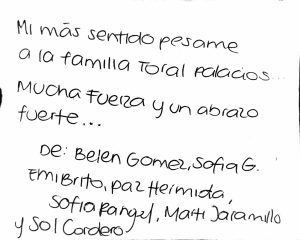 Mi más sentido pesame
a la familia Toral Palacios...
Mucha Fuerza y un abrazo
fuerte...
De: Belen Gomez, Sofia G.
Emi Brito, Paz Hermida,
Sofia Rangel, Marti Jaramillo
y Sol Cordero